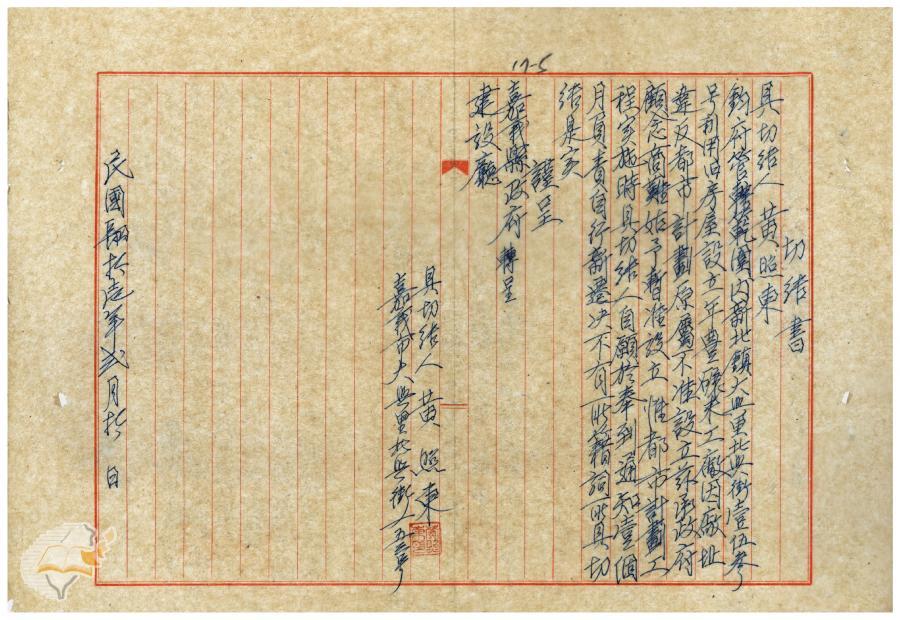 17-5
切結書
具切結人黃照東
鈞府管轄範圍內新北鎮大興里北興街壹伍叁
号利用旧房屋設立年豊碾米工廠因廠址
違反都市計劃原屬不准設立茲承政府
顧念商難姑予暫准設立惟都市計劃工
程实施時具切結人自願於奉到通知壹個
月負責自行新遷决不有所藉詞所具切
結是实
謹呈
嘉義縣政府 轉呈
建設廳
具切結人 黃照東
嘉義市大興里北興街一五三号
民國 年弍月 日